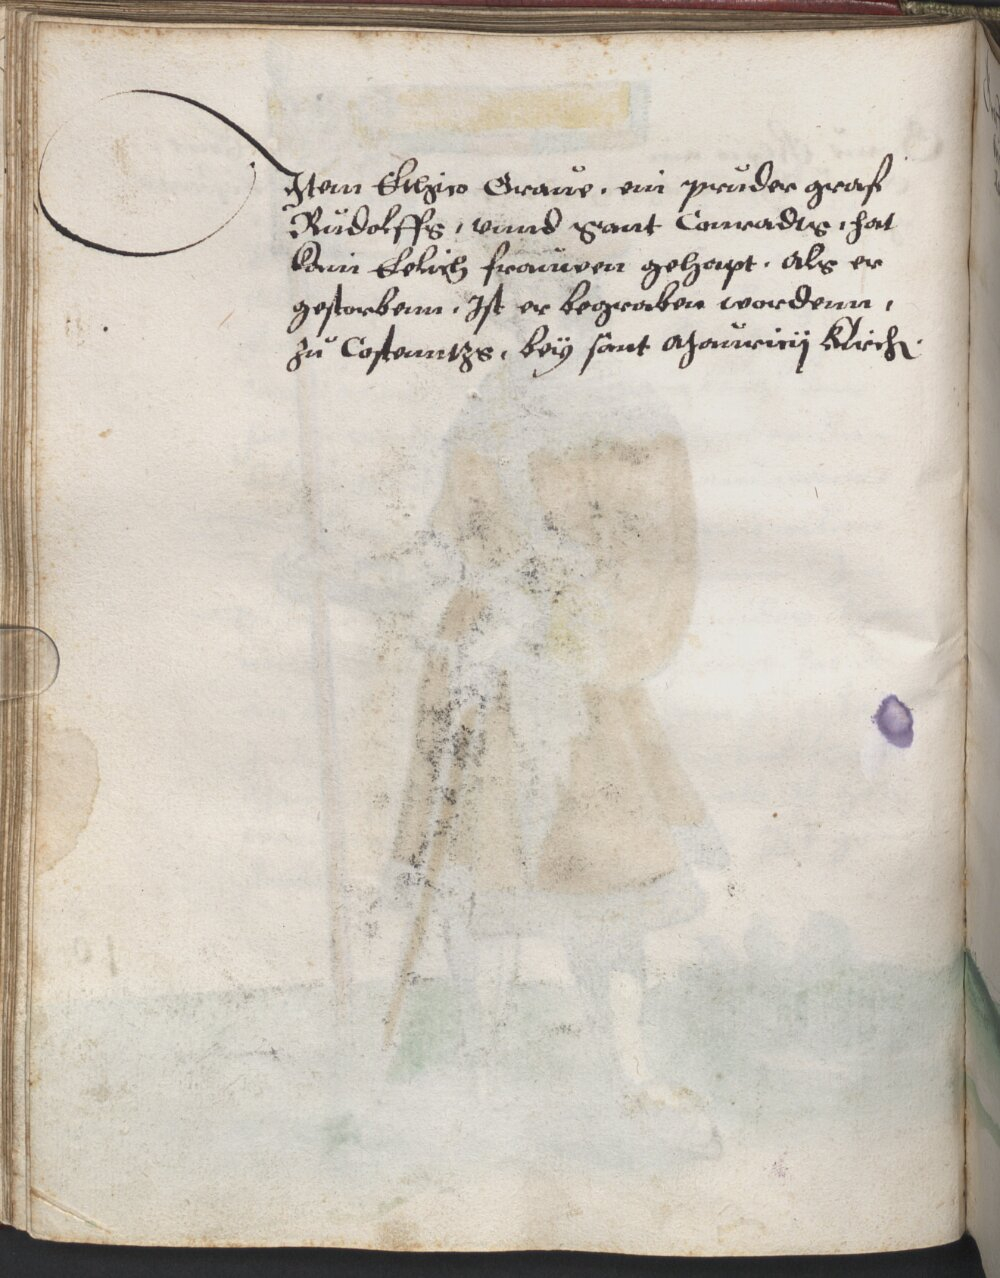 Item Ethico Graue, ein prüder graf
Rüdolffs, vnnd Sant Conradts, hat
kein Eelich frauwen gehapt. Als er
gestorbenn, Ist er begraben wordenn,
zu Costenntzs, beÿ sant Mauricij Kirch.